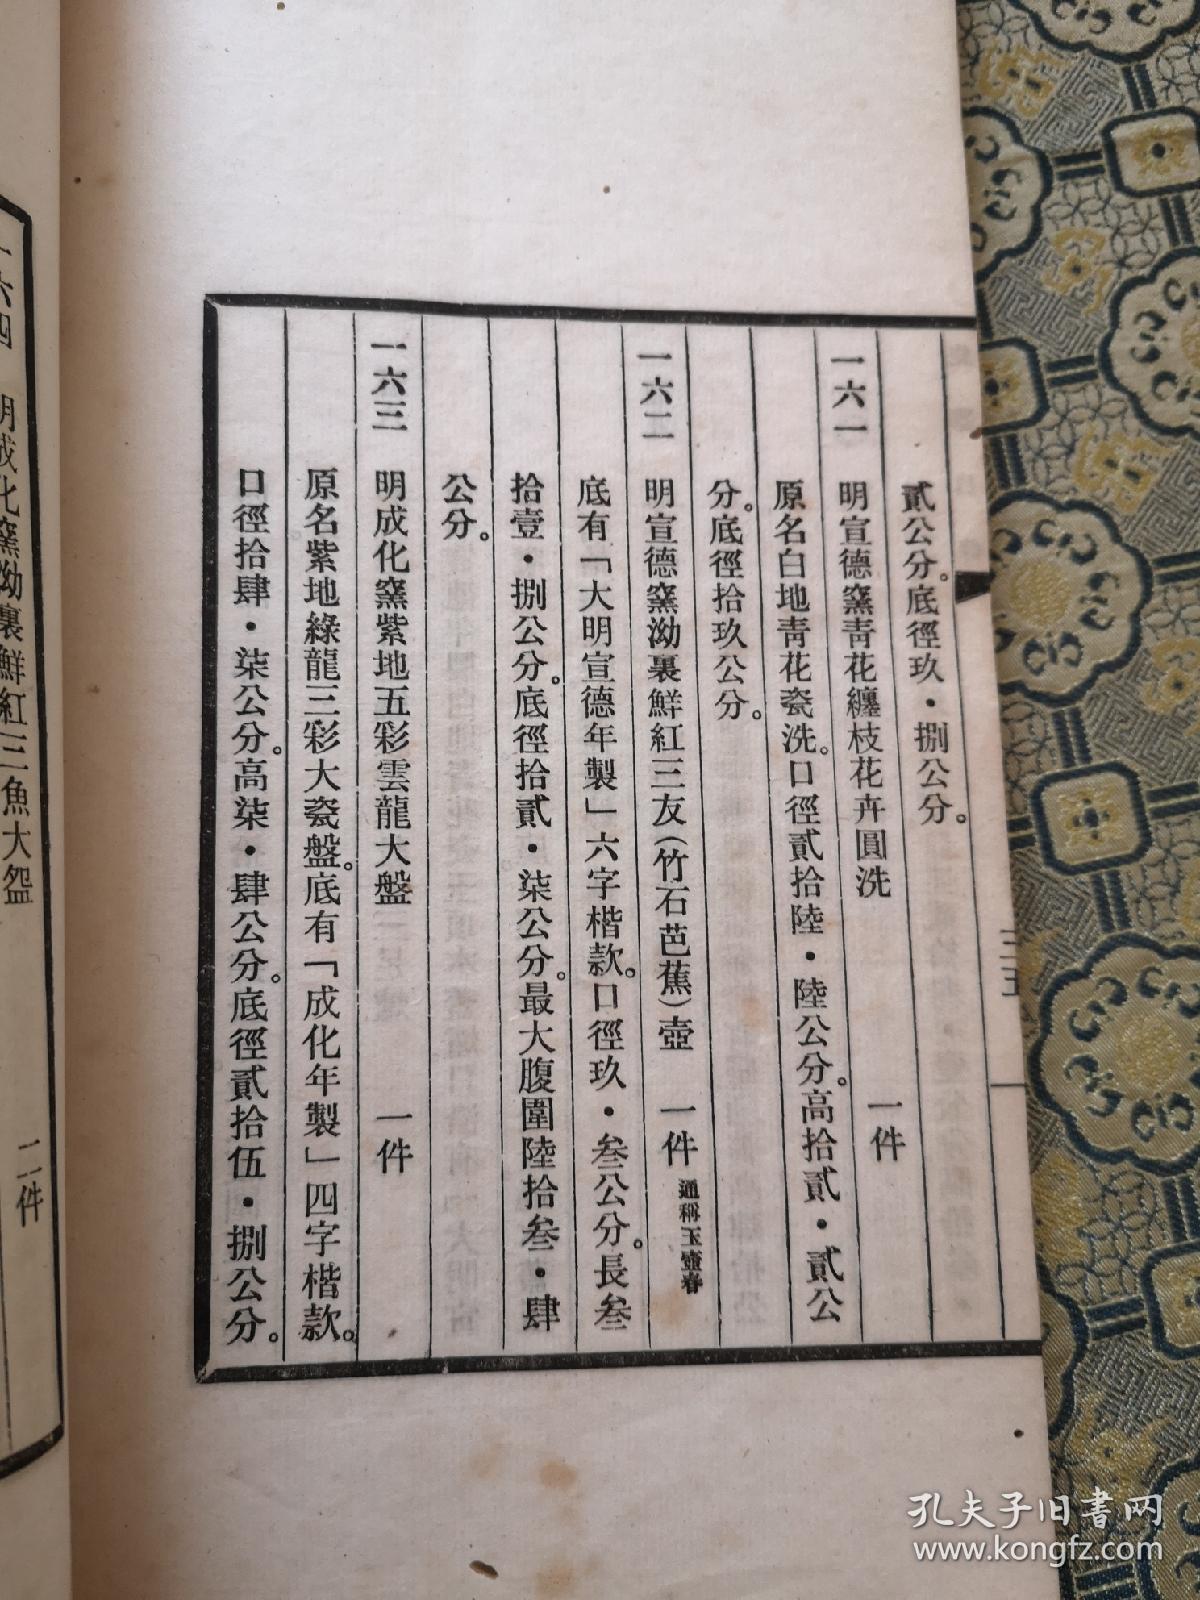 三五
貳公分。底徑玖・捌公分。
一六一　明宣德窯青花纏枝花卉圓洗　一件
原名白地青花瓷洗。口徑貳拾陸・陸公分。高拾貳・貳公
分。底徑拾玖公分。
一六二　明宣德窯泑裏鮮紅三友(竹石芭蕉)壺　一件　通稱玉壺春
底有「大明宣德年製」六字楷款。口徑玖・叁公分。長叁
拾壹・捌公分。底徑拾貳・柒公分。最大腹圍陸拾叁・肆
公分。
一六三　明成化窯紫地五彩雲龍大盤　一件
原名紫地綠龍三彩大瓷盤。底有「成化年製」四字楷款。
口徑拾肆・柒公分。高柒・肆公分。底徑貳拾伍・捌公分。
一六四　明成化窯泑裏鮮紅三魚大盌　二件
孔夫子旧书网
www.kongfz.com